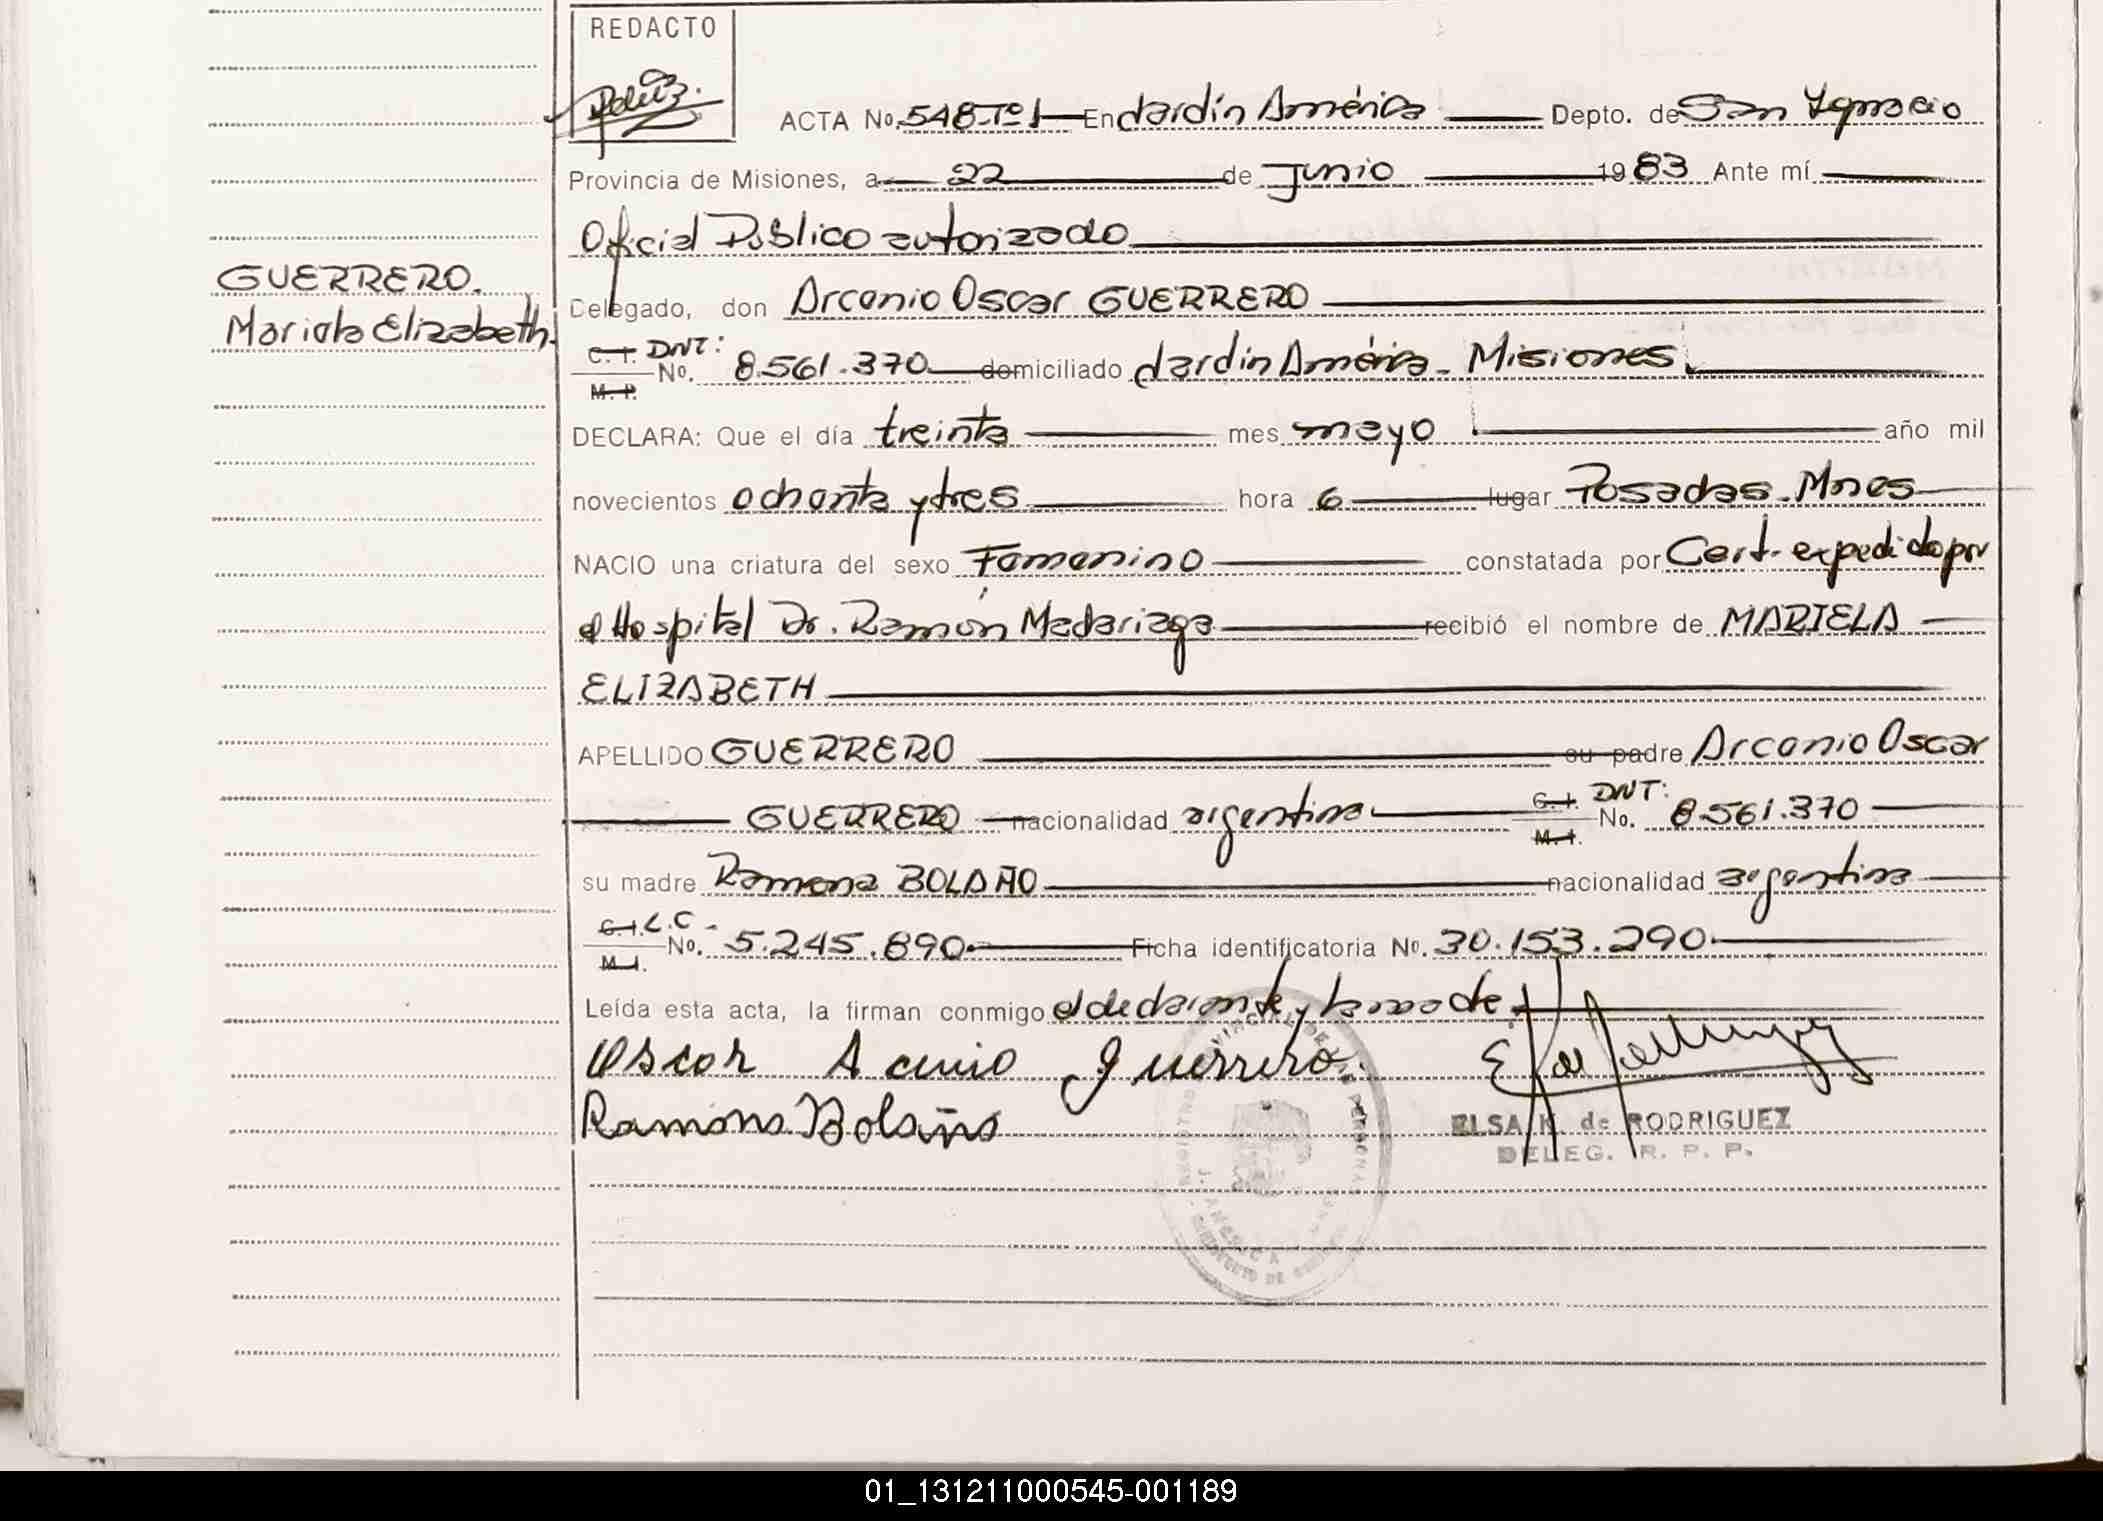 REDACTO
ACTA No. 548-Tº1 En Jardín América Depto. de San Ignacio
Provincia de Misiones, a 22 de junio 1983 Ante mí
Oficial Público autorizado
GUERRERO.
Delegado, don Arcenio Oscar GUERRERO
Mariela Elizabeth.
C. I. DNI:
No. 8.561.370 domiciliado Jardín América - Misiones
M. I.
DECLARA: Que el día treinta mes mayo año mil
novecientos ochenta y tres hora 6 lugar Posadas - Mnes
NACIO una criatura del sexo Femenino constatada por Cert. expedido por
el Hospital Dr. Ramón Madariaga recibió el nombre de MARIELA
ELIZABETH
APELLIDO GUERRERO su padre Arcenio Oscar
GUERRERO nacionalidad argentina C. I. DNI: No. 8.561.370
M. I.
su madre Ramona BOLAÑO nacionalidad argentina
C. I. L.C - No. 5.245.890 Ficha identificatoria No. 30.153.290
M. I.
Leída esta acta, la firman conmigo el declarante y la madre.
Oscar Acenio Guerrero
Ramona Bolaño
ELSA K. de RODRIGUEZ
DELEG. R. P. P.
01_131211000545-001189